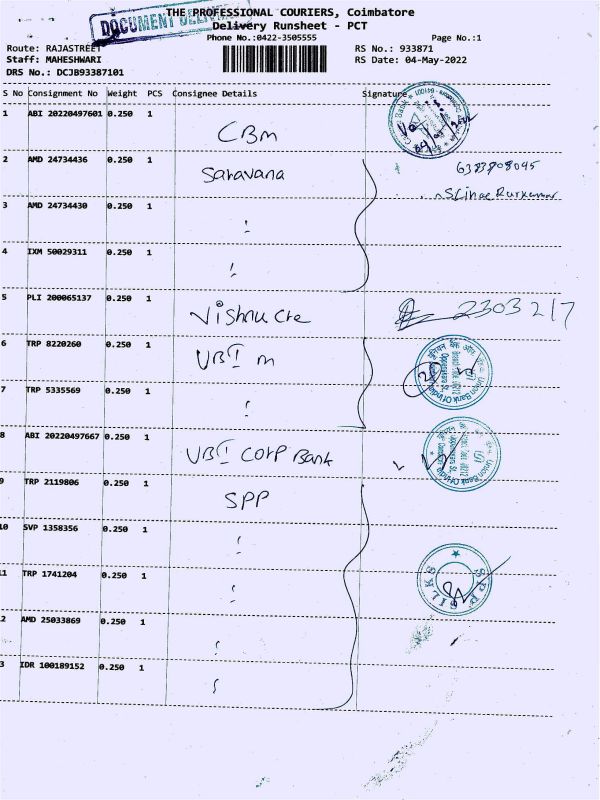 DOCUMENT DELIVERED
THE PROFESSIONAL COURIERS, Coimbatore
Delivery Runsheet - PCT
Phone No.:0422-3505555
Page No.:1
Route: RAJASTREET
Staff: MAHESHWARI
DRS No.: DCJB93387101
RS No.: 933871
RS Date: 04-May-2022
S No Consignment No Weight PCS Consignee Details Signature
1 ABI 20220497601 0.250 1 CBM
2 AMD 24734436 0.250 1 Saravana
3 AMD 24734430 0.250 1
4 IXM 50029311 0.250 1
5 PLI 200065137 0.250 1 Vishnu Cre 2303217
6 TRP 8220260 0.250 1 UBI m
7 TRP 5335569 0.250 1
8 ABI 20220497667 0.250 1 UBI Corp Bank
9 TRP 2119806 0.250 1 SPP
10 SVP 1358356 0.250 1
11 TRP 1741204 0.250 1
SILKS
2 AMD 25033869 0.250 1
3 IDR 100189152 0.250 1